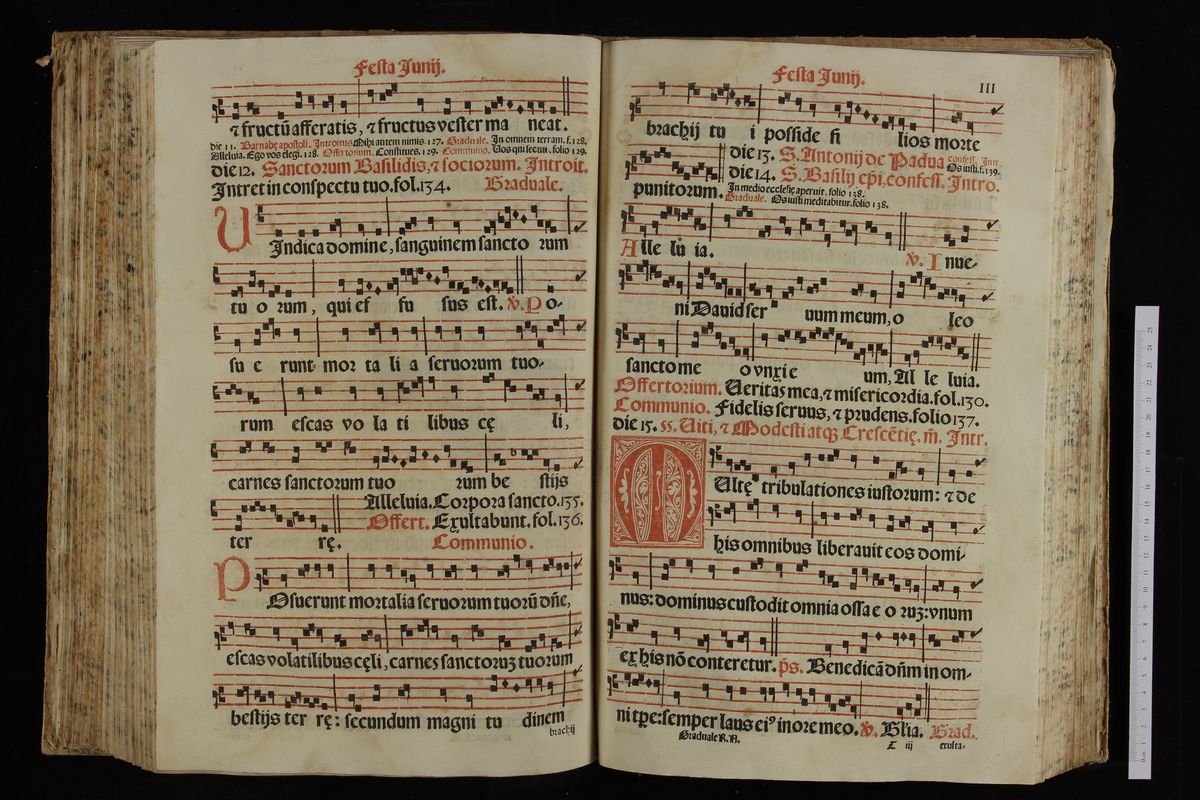 Festa Junij.
⁊ fructū afferatis, ⁊ fructus vester ma neat.
die 11. Barnabę apostoli. Introitus Mihi autem nimis. 127. Graduale. In omnem terram. f. 128.
Alleluia. Ego vos elegi. 128. Offertorium. Constitues. 129. Communio. Vos qui secuti. folio 129.
die 12. Sanctorum Basilidis, ⁊ sociorum. Introit.
Intret in conspectu tuo. fol. 134. Graduale.
VIndica domine, sanguinem sancto rum
tu o rum, qui ef fu sus est. ℣. Po-
su e runt mor ta li a seruorum tuo-
rum escas vo la ti libus cę li,
carnes sanctorum tuo rum be stijs
Alleluia. Corpora sancto. 135.
Offert. Exultabunt. fol. 136.
ter rę. Communio.
POsuerunt mortalia seruorum tuorū dn̄e,
escas volatilibus cęli, carnes sanctoruʒ tuorum
bestijs ter rę: secundum magni tu dinem
brachij
Festa Junij.
III
brachij tu i posside fi lios morte
die 13. S. Antonij de Padua confess. Intr.
Os iusti. f. 139.
die 14. S. Basilij ep̄i. confess. Intro.
punitorum. In medio ecclesię aperuit. folio 138.
Graduale. Os iusti meditabitur. folio 138.
Alle lu ia. ℣. Inue-
ni Dauid ser uum meum, o leo
sancto me o vnxi e um, Al le luia.
Offertorium. Veritas mea, ⁊ misericordia. fol. 130.
Communio. Fidelis seruus, ⁊ prudens. folio 137.
die 15. ss. Viti, ⁊ Modesti atqʒ Crescētię. m̄. Intr.
MVltę tribulationes iustorum: ⁊ de
his omnibus liberauit eos domi-
nus: dominus custodit omnia ossa e o ruʒ: vnum
ex his nō conteretur. p̄s. Benedicā dn̄m in om-
ni tp̄e: semper laus eiꝰ in ore meo. ℣. Gl̄ia. Grad.
Graduale R. A.
T iij
exulta-